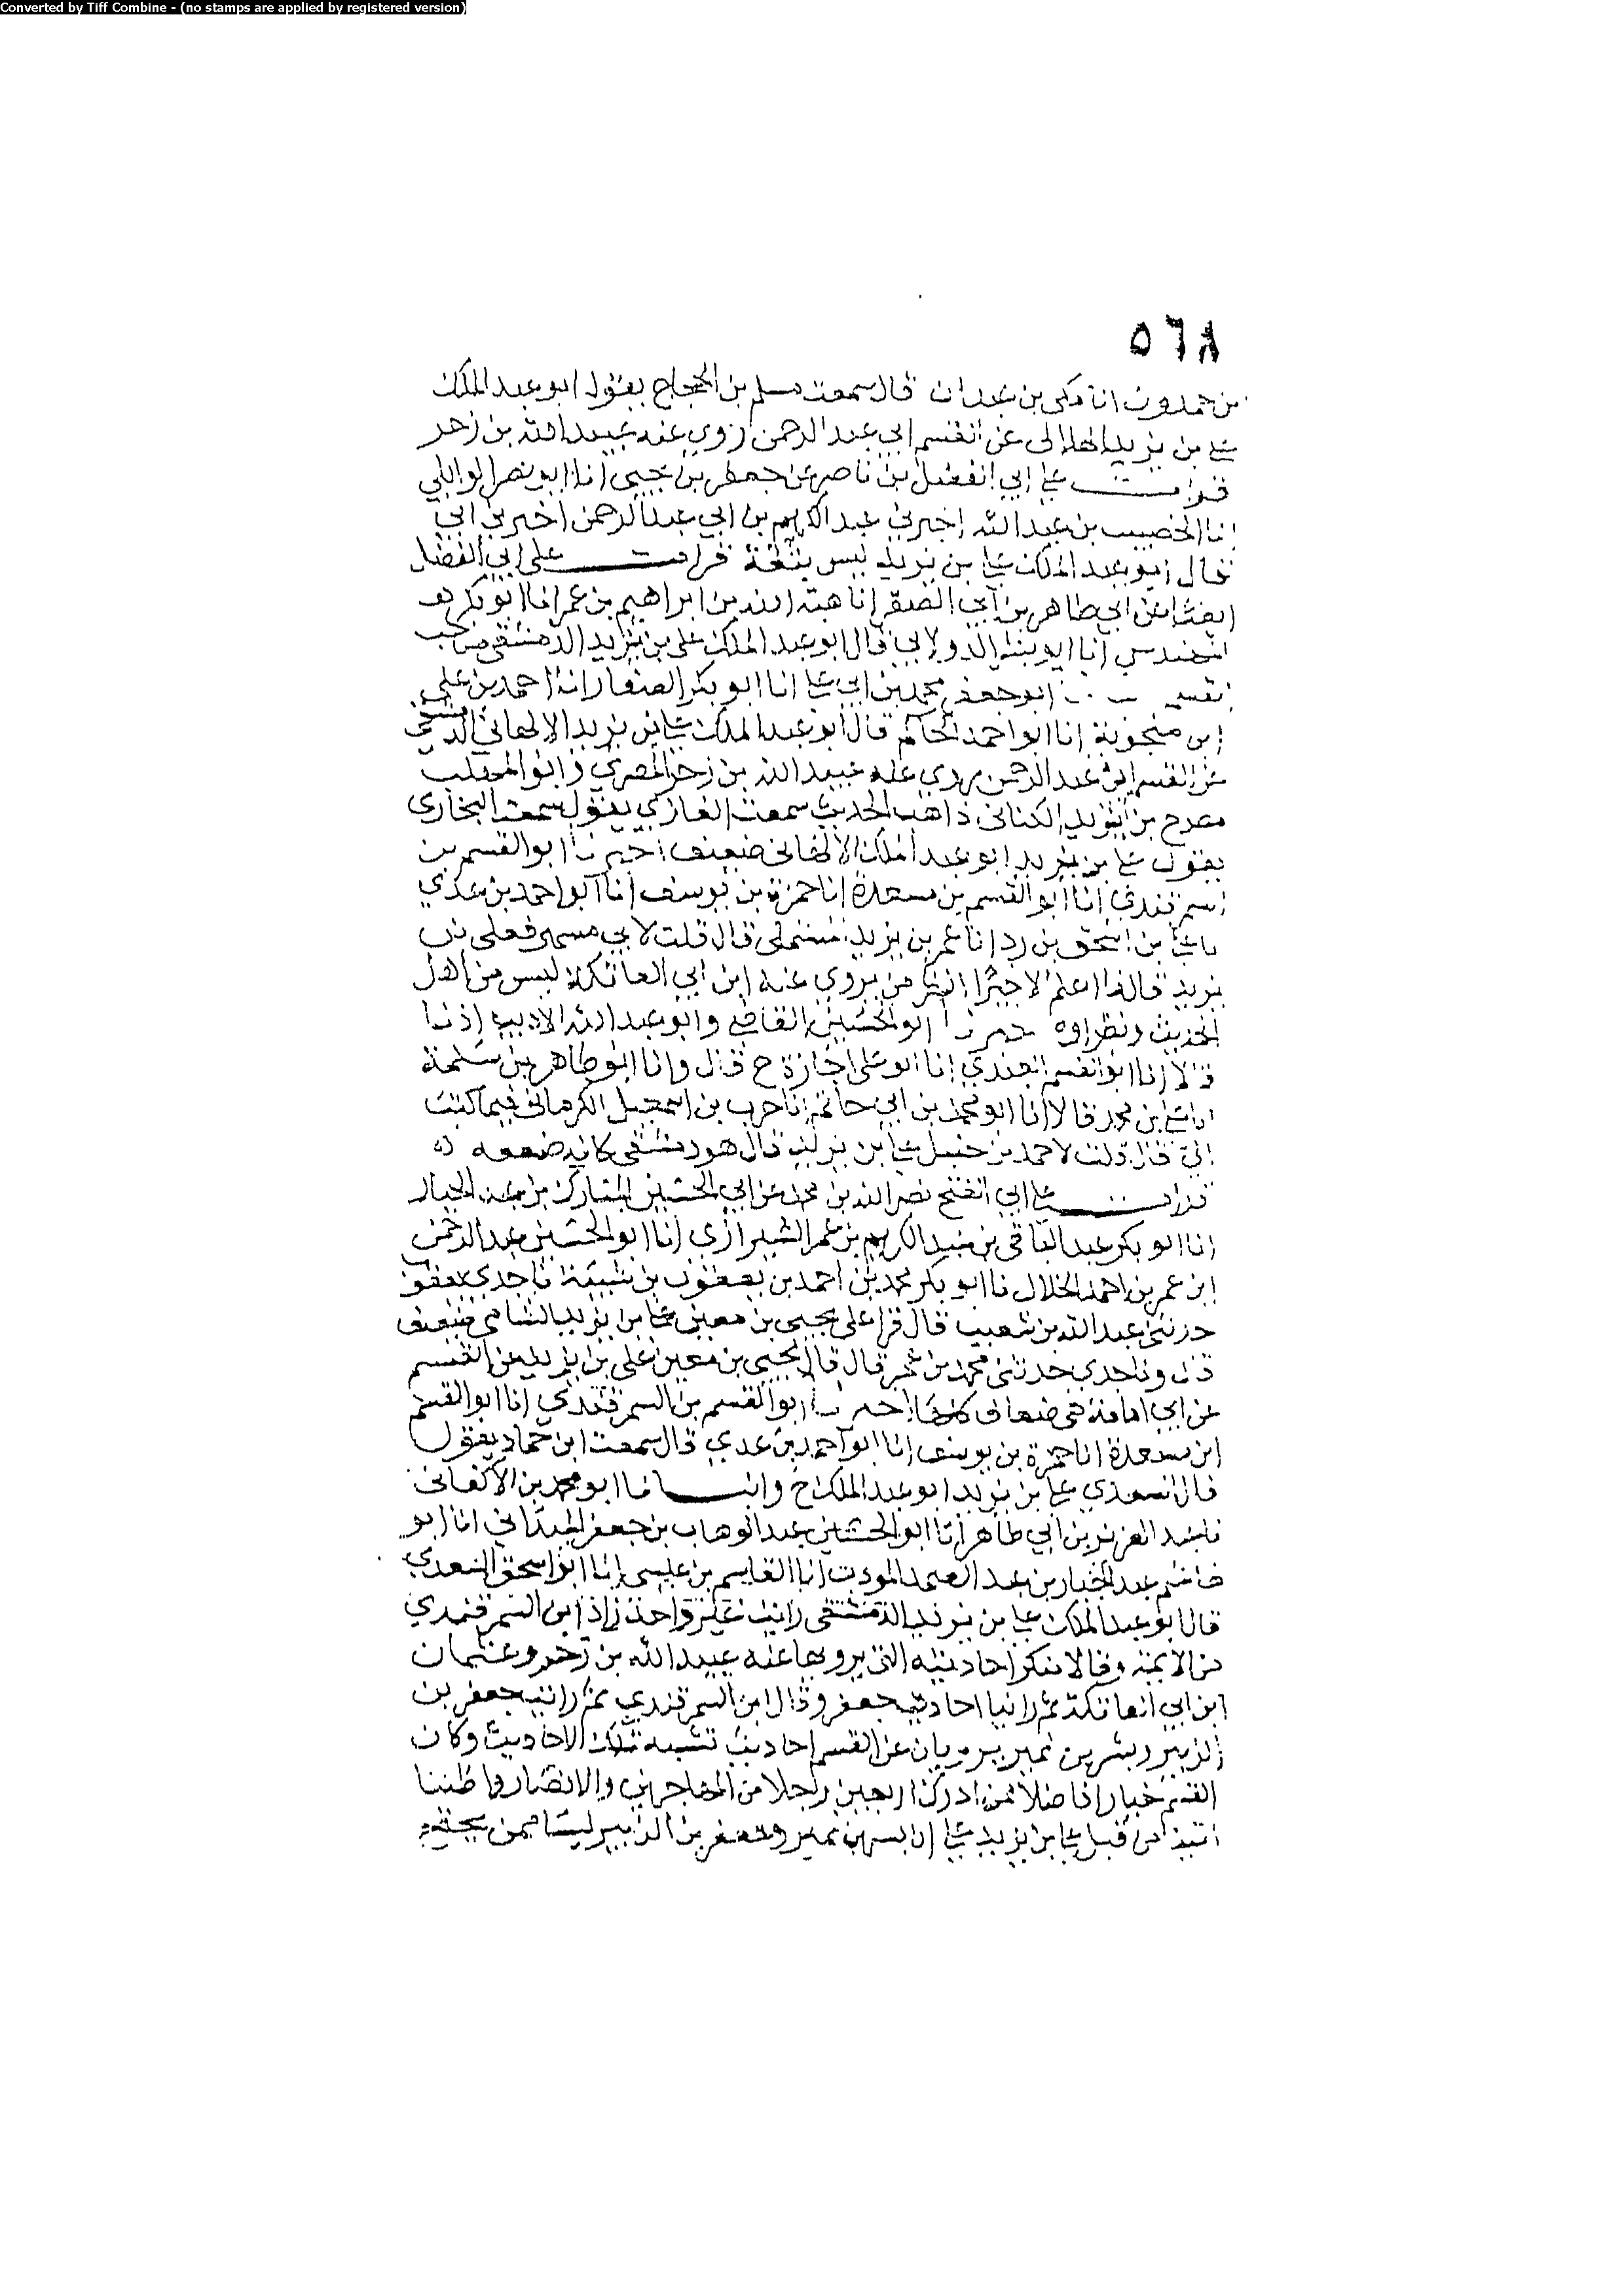 Converted by Tiff Combine - (no stamps are applied by registered version)
٥٦٨
بن حمدون انا مكى بن عبدان قال سمعت مسلم بن الحجاج يقول ابو عبد الملك
على بن يزيد الهلالى عن القسم ابي عبد الرحمن روي عنه عبيد الله بن زحر
قرات على ابي الفضل بن ناصر عن جعفر بن يحيى انا ابو نصر الوايلي
انا الخصيب بن عبد الله اخبرني عبد الكريم بن ابي عبد الرحمن اخبرني ابي
قال ابو عبد الملك على بن يزيد ليس بثقة قرات على ابي الفضل
ايضا عن ابي طاهر بن ابي الصقر انا هبة الله بن ابراهيم بن عمر انا ابو بكر
المهندس انا ابو بشر الدولابي قال ابو عبد الملك على بن يزيد الدمشقي صاحب
القسم ابو جعفر محمد بن ابي على انا ابو بكر الصفار انا احمد بن علي
ابن منجويه انا ابو احمد الحاكم قال ابو عبد الملك على بن يزيد الالهاني الدمشقي
عن القسم ابى عبد الرحمن روي عنه عبيد الله بن زحر المصري وابو المهلب
مطرح بن يزيد الكنانى ذاهب الحديث سمعت الغازي يقول سمعت البخاري
يقول على بن يزيد ابو عبد الملك الالهاني ضعيف اخبرنا ابو القسم بن
السمرقندي انا ابو القسم بن مسعدة انا حمزة بن يوسف انا ابو احمد بن عدي
نا على بن اسحق بن رد انا عمر بن يزيد قال قلت لابي مسهر فعلى بن
يزيد قال ما اعلم الا خيرا انظر من يروي عنه ابن ابي العاتكة ليس من اهل
الحديث ونظراوه اخبرنا ابو الحسين القاضي وابو عبد الله الاديب اذنا
قالا انا ابو القسم العبدي انا ابو على اجازة ح قال وانا ابو طاهر بن سلمة
انا على بن محمد قالا انا ابو محمد بن ابي حاتم انا حرب بن اسمعيل الكرماني فيما كتب
الي قال قلت لاحمد بن حنبل على بن يزيد قال هو دمشقى كانه ضعفه
قرات على ابي الفتح نصر الله بن محمد عن ابي الحسين المبارك بن عبد الجبار
انا ابو بكر عبد الباقي بن عبد الكريم بن عمر الشيرازي انا ابو الحسين عبد الرحمن
ابن عمر بن احمد الخلال نا ابو بكر محمد بن احمد بن يعقوب بن شيبة نا جدي يعقوب
حدثني عبد الله بن شعيب قال قرا على يحيى بن معين على بن يزيد الشامى ضعيف
قال ونا جدي حدثنى محمد بن عمر قال قال يحيى بن معين على بن يزيد عن القسم
عن ابي امامة هي ضعاف كلها اخبرنا ابو القسم بن السمرقندي انا ابو القسم
ابن مسعدة انا حمزة بن يوسف انا ابو احمد بن عدي قال سمعت ابن حماد يقول
قال السعدي على بن يزيد ابو عبد الملك ح وانبانا ابو محمد بن الاكفانى
نا عبد العزيز بن ابي طاهر انا ابو الحسين عبد الوهاب بن جعفر الميداني انا ابو
هاشم عبد الجبار بن عبد الصمد المودب انا القاسم بن عيسى انا ابو اسحق السعدي
قال ابو عبد الملك على بن يزيد الدمشقى رايت غير واحد زاد ابن السمرقندي
من الايمة وقالا ينكر احاديثه التي يرويها عنه عبيد الله بن زحر وعثمان
ابن ابي العاتكة ثم راينا احاديث جعفر وقال ابن السمرقندي ثم رايت جعفر بن
الزبير وبشر بن نمير يرويان عن القسم احاديث تشبه تلك الاحاديث وكان
القسم خيارا فاضلا ممن ادرك اربعين رجلا من المهاجرين والانصار واظننا
اتينا من قبل على بن يزيد على ان بشر بن نمير وجعفر بن الزبير ليسا ممن يحتج